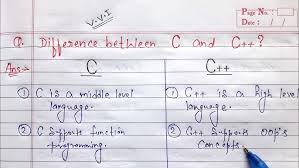 V.V.I
Page No.:
Date: / /
Q. Difference bethleen C and C++?
Ans→ C C++
① C is a middle level language.
① C++ is a High level language.
② C Supports function programming.
② C++ Supports OOP's Concepts.